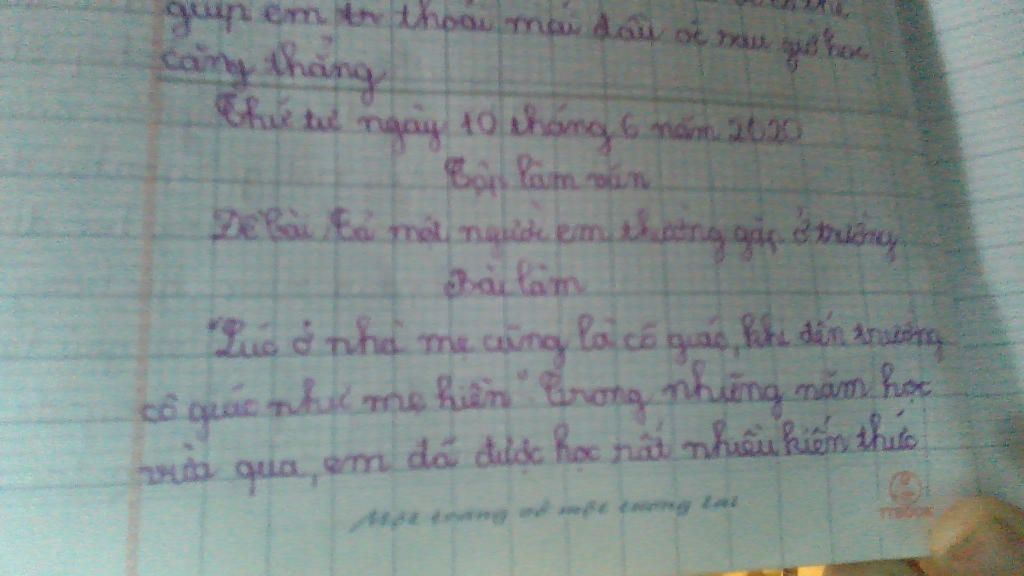 giúp em thoải mái đầu óc sau giờ học
căng thẳng
Thứ tư ngày 10 tháng 6 năm 2020
Tập làm văn
Đề bài Tả một người em thường gặp ở trường
Bài làm
"Lúc ở nhà mẹ cũng là cô giáo, khi đến trường
cô giáo như mẹ hiền" Trong những năm học
vừa qua, em đã được học rất nhiều kiến thức
Một trang vở một tương lai
TTBOOK